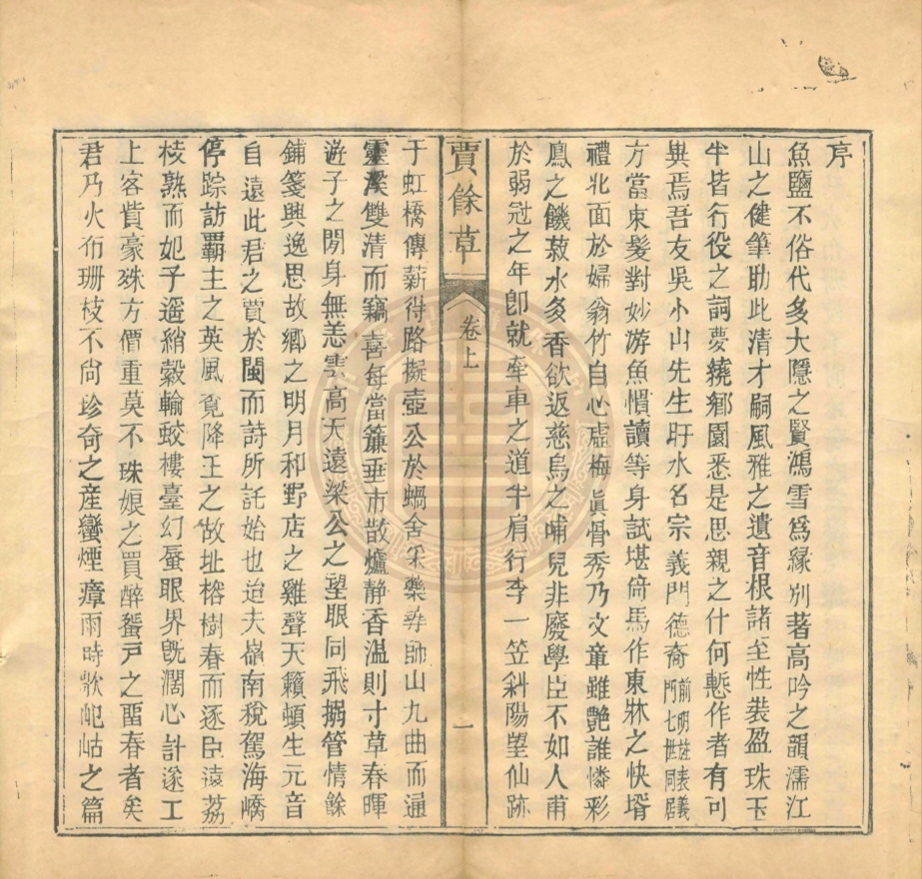 序
魚鹽不俗代多大隱之賢鴻雪爲緣別著高吟之韻濡江
山之健筆助此清才嗣風雅之遺音根諸至性裝盈珠玉
半皆行役之詞夢繞鄉園悉是思親之什何慙作者有可
異焉吾友吳小山先生盱水名宗義門德裔前明旌表義門七世同居
方當束髮對妙游魚慣讀等身試堪倚馬作東牀之快壻
禮北面於婦翁竹自心虛梅眞骨秀乃文章雖艷誰憐彩
鳳之饑菽水多香欲返慈烏之哺兒非廢學臣不如人甫
於弱冠之年卽就牽車之道半肩行李一笠斜陽望仙跡
賈餘草 卷上 一
于虹橋傳薪得路擬壺公於蝸舍采藥尋師山九曲而通
靈溪雙清而竊喜每當簾垂市散爐靜香溫則寸草春暉
遊子之閒身無恙雲高天遠梁公之望眼同飛搦管情餘
鋪箋興逸思故鄉之明月和野店之雞聲天籟頓生元音
自遠此君之賈於閩而詩所託始也迨夫嶺南稅駕海嶠
停踪訪霸主之英風覓降王之故址榕樹春而逐臣遠荔
枝熟而妃子遥綃縠輪蛟樓臺幻蜃眼界旣濶心計遂工
上客貲豪殊方價重莫不珠娘之買醉蜑戸之留春者矣
君乃火布珊枝不尙珍奇之産蠻煙瘴雨時歌屺岵之篇